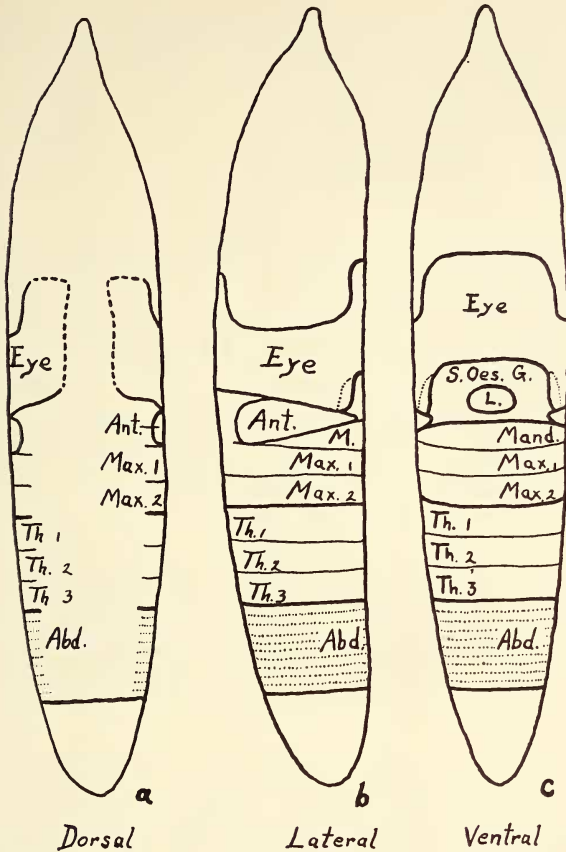 Eye
Ant.
Max. 1
Max. 2
Th 1
Th. 2
Th 3
Abd.
a
Dorsal
Eye
Ant.
M.
Max. 1
Max. 2
Th. 1
Th. 2
Th. 3
Abd.
b
Lateral
Eye
S. Oes. G.
L.
Mand.
Max. 1
Max. 2
Th. 1
Th. 2
Th. 3
Abd.
c
Ventral